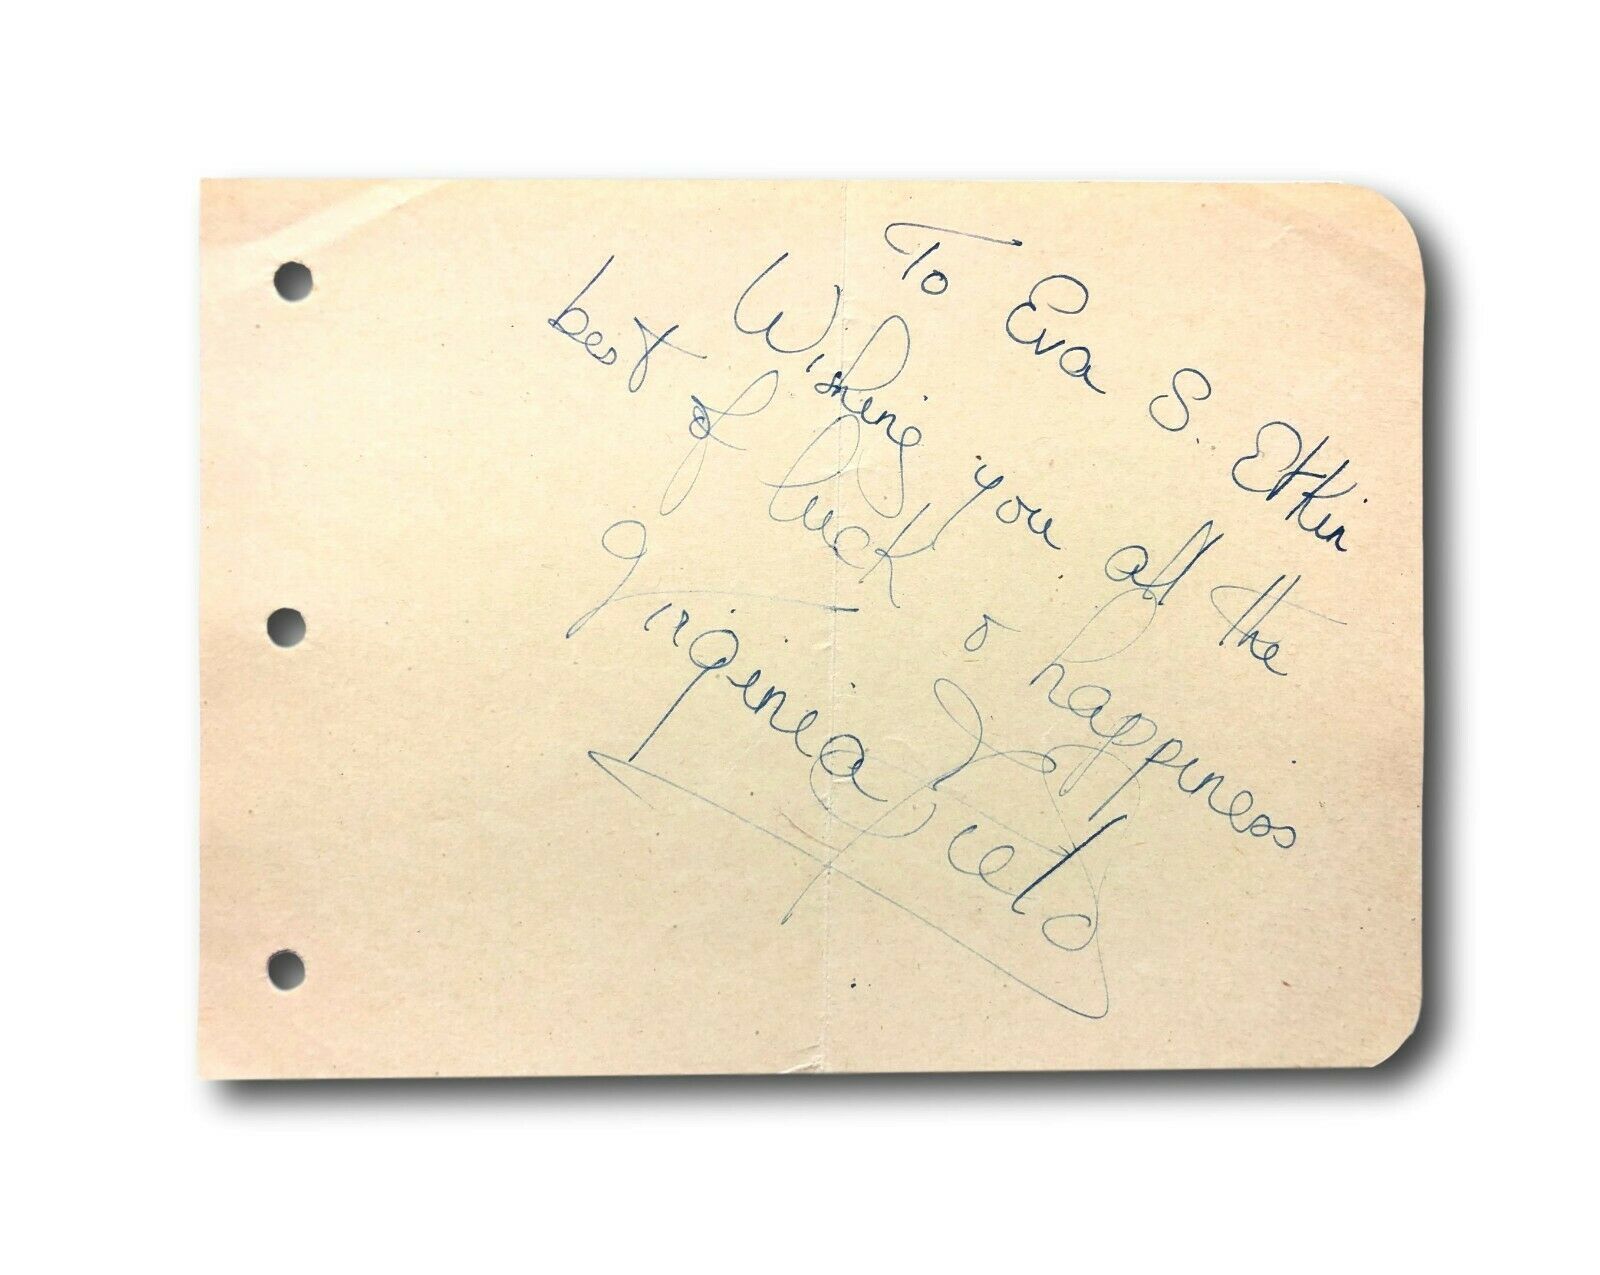 To Eva S. Etkin
Wishing you all the
best of luck & happiness
Virginia Field